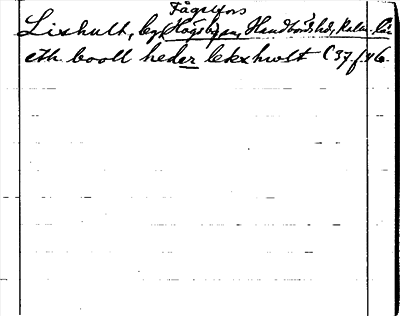 Fågelfors
Lixhult, by, Högsby sn, Handbörds hd, Kalm. län
eth. booll heder lekxhwlt C 37. f. 46.